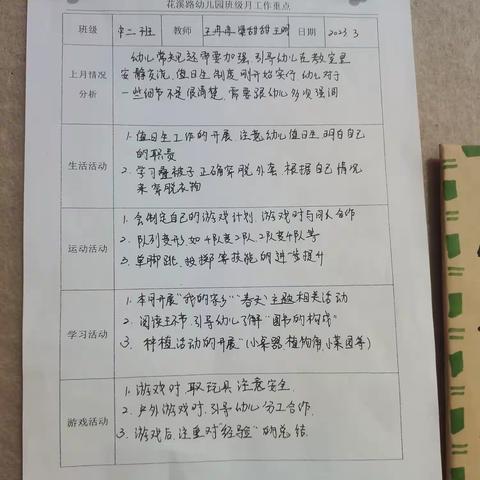 花溪路幼儿园班级月工作重点
班级 中二班 教师 日期 2023.3
幼儿常规还需要加强,引导幼儿在教室里
上月情况 安静交流,值日生制度刚开始实行,幼儿对于
分析 一些细节不是很清楚,需要跟幼儿多次强调
1. 值日生工作的开展,注意幼儿值日生明白自己
的职责
生活活动 2. 学习叠被子,正确穿脱外套,根据自己情况
来穿脱衣物
1. 会制定自己的游戏计划,游戏时与同伴合作
运动活动 2. 队列变形如4队变2队,2队变4队等
3. 单脚跳、投掷等技能的进一步提升
1. 本月开展“我的家乡”“春天”主题相关活动
学习活动 2. 阅读环节,引导幼儿了解“图书的构成”
3. 种植活动的开展“(小菜器,植物角,小菜园等)
1. 游戏时,取玩具注意安全.
游戏活动 2. 户外游戏时,引导幼儿分工合作.
3. 游戏后,注重对“经验”的总结.